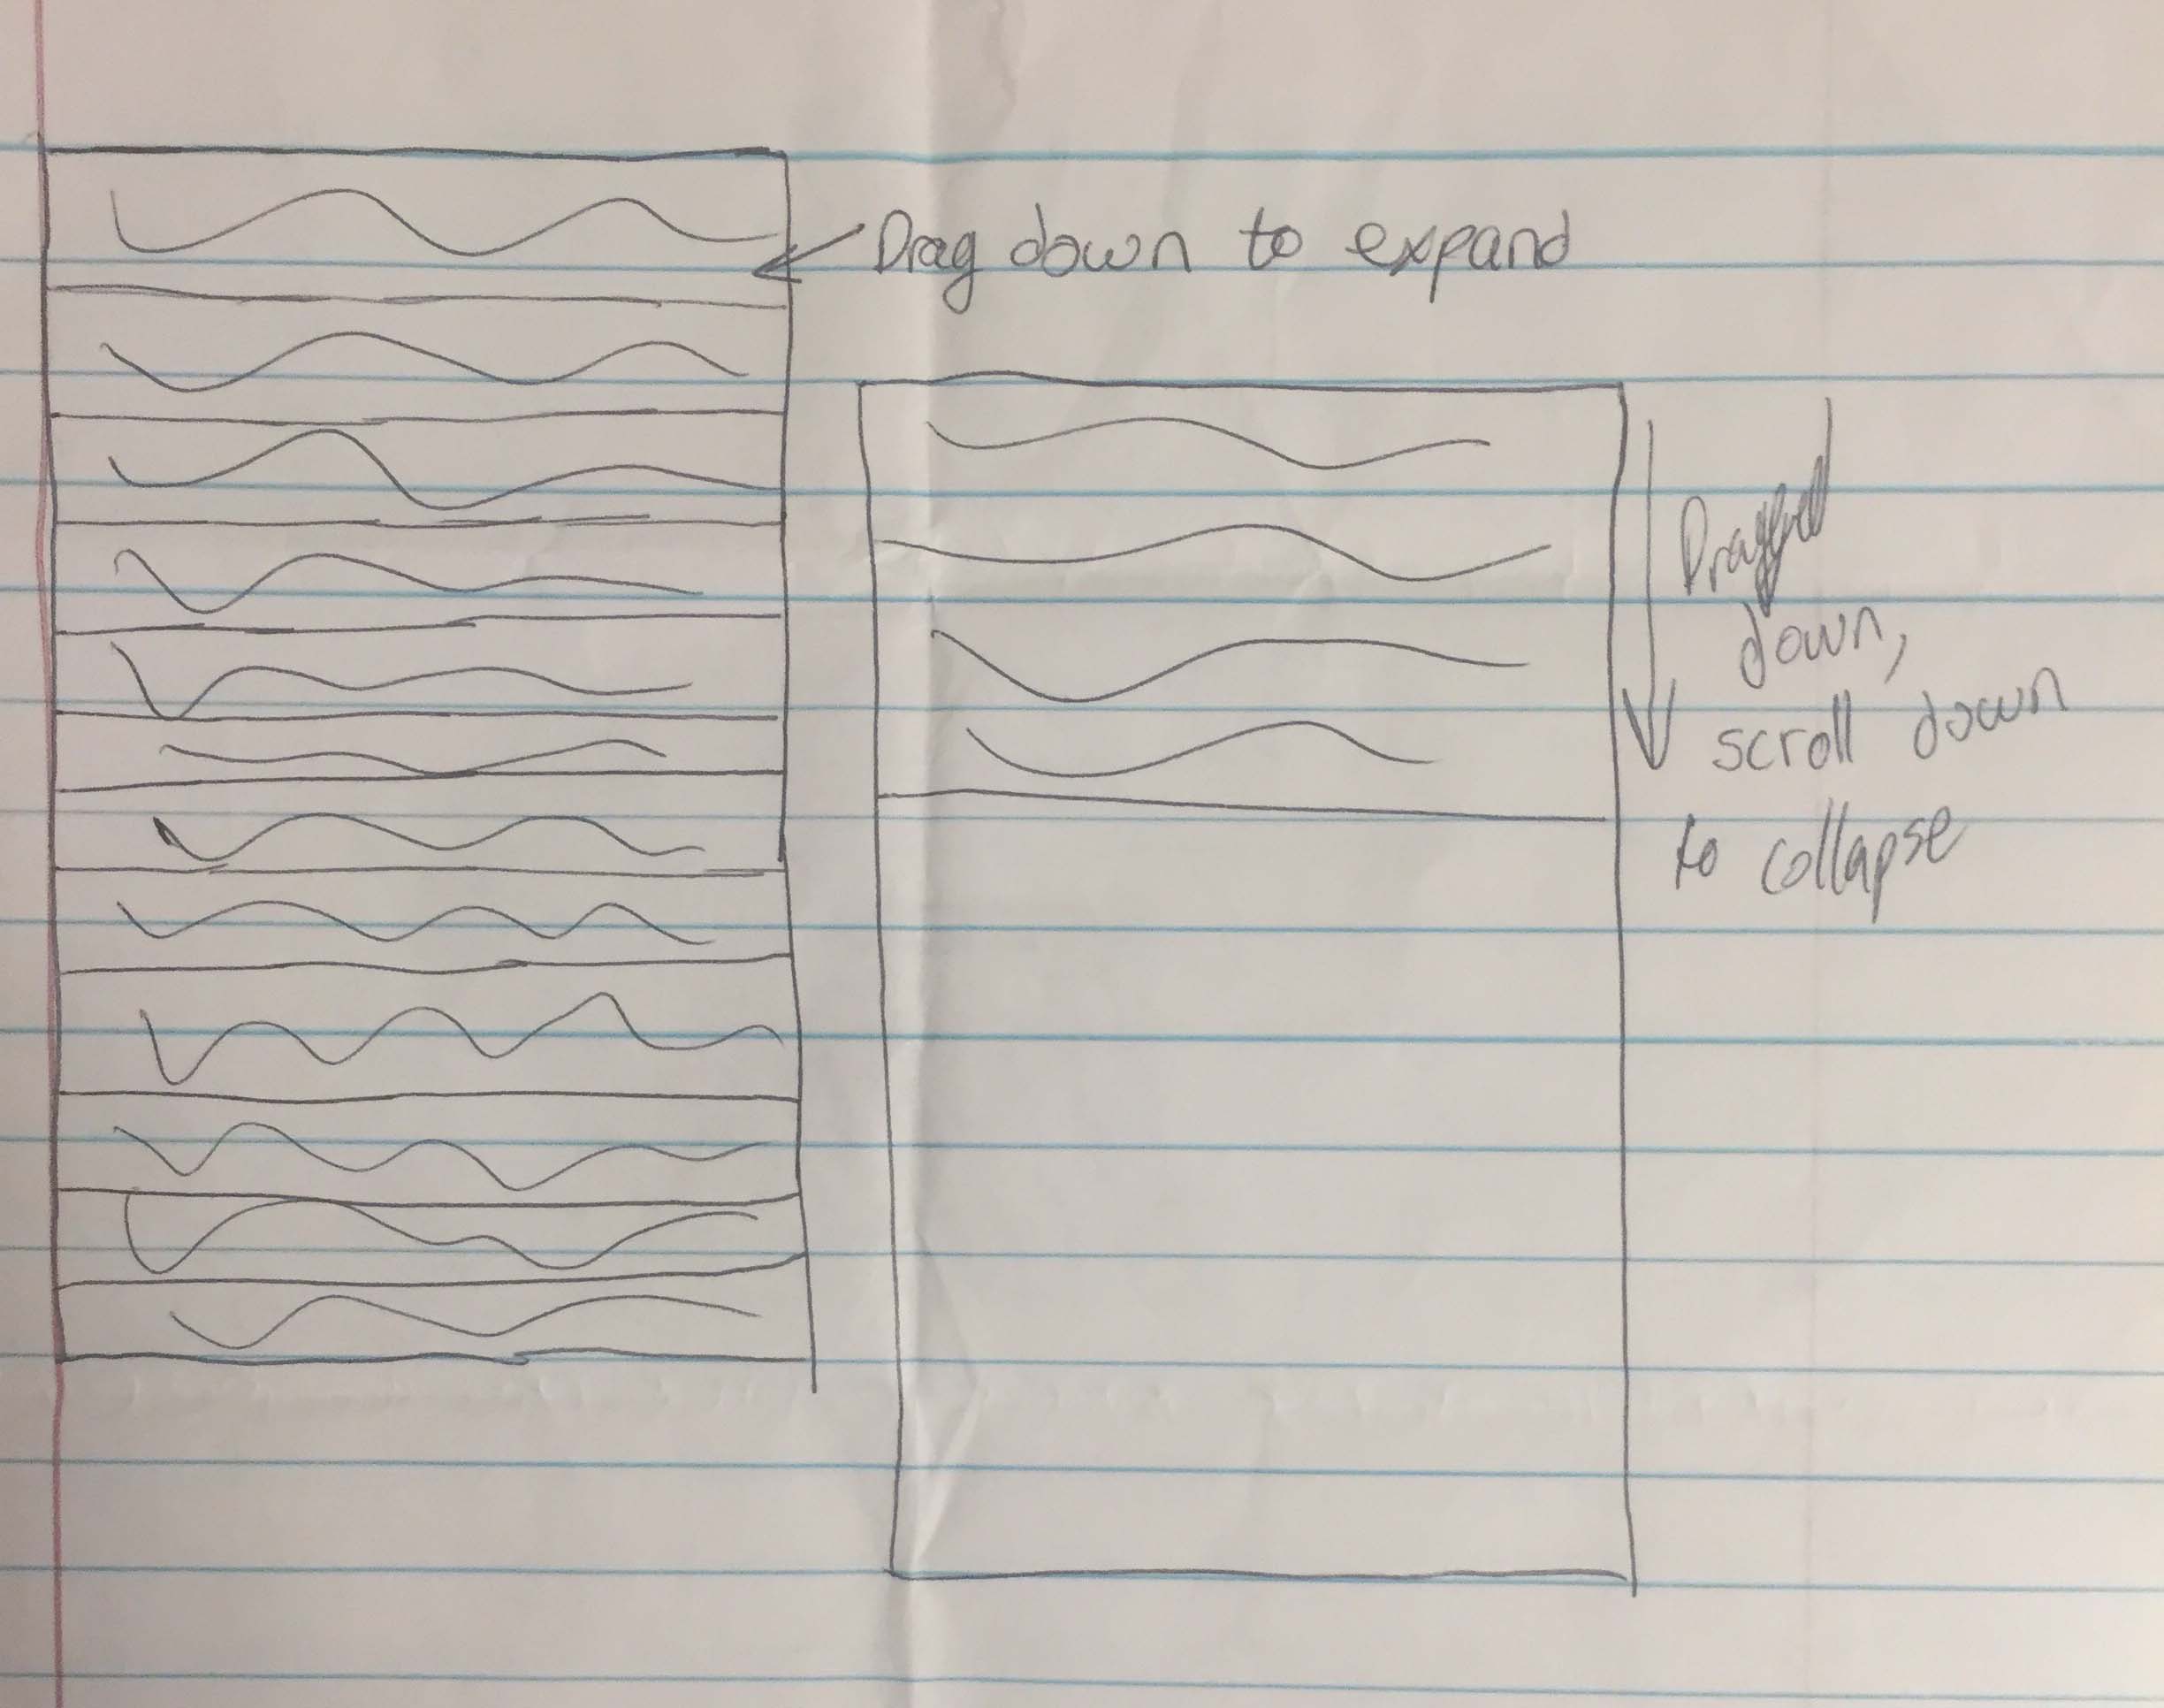 Drag down to expand
Dragged
down,
scroll down
to collapse